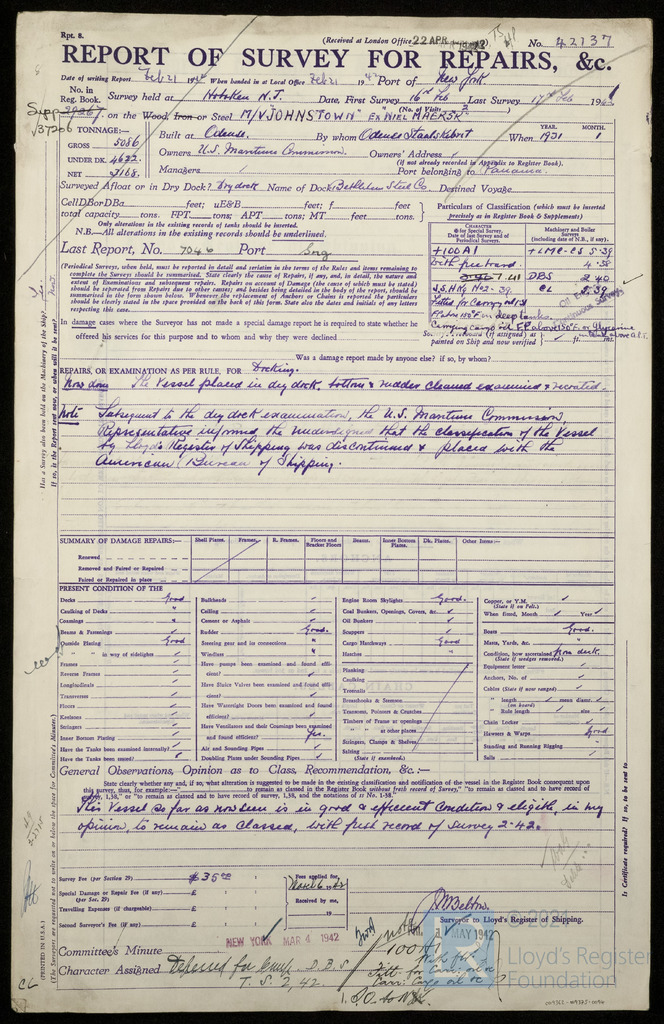 Rpt. 8.
(Received at London Office 22 APR 1942)
No. 42137
REPORT OF SURVEY FOR REPAIRS, &c.
Date of writing Report Feb 21 1942 When handed in at Local Office Feb 21 1942 Port of New York.
No. in Reg. Book. Survey held at Hoboken N.J. Date, First Survey 16th Feb Last Survey 17th Feb 1942
(No. of Visits 2)
37206 on the Wood, Iron or Steel M/V "JOHNSTOWN" EX NIEL MAERSK
TONNAGE:—
GROSS 5086
UNDER DK. 4622
NET 3168
Built at Odense, By whom Odense Staalskibsv. When 1931 1
YEAR. MONTH.
Owners U.S. Maritime Commission. Owners' Address
(if not already recorded in Appendix to Register Book).
Managers Port belonging to Panama.
Surveyed Afloat or in Dry Dock? Dry dock Name of Dock Bethlehem Steel Co. Destined Voyage
CellDBorDBa feet; uE&B feet; f feet
total capacity tons. FPT tons; APT tons; MT feet tons.
Only alterations in the existing records of tanks should be inserted.
N.B.—All alterations in the existing records should be underlined.
Last Report, No. 7046 Port
Particulars of Classification (which must be inserted precisely as in Register Book & Supplements)
CHARACTER
Date of last Survey and of Periodical Surveys.
Machinery and Boiler Surveys
(including date of N.B., if any).
+100A1 +LMC-CS 5.39
with freeboard 4.38
7.41 DBS 2.40
S.S. No 2-39. CL 5.39
(Periodical Surveys, when held, must be reported in detail and seriatim in the terms of the Rules and items remaining to complete the Surveys should be summarised. State clearly the cause of Repairs, if any, and, in detail, the nature and extent of Examinations and subsequent repairs. Repairs on account of Damage (the cause of which must be stated) should be reported separate from Repairs due to other causes; and besides being detailed in the body of the report, should be summarised in the form shown below. Whenever the replacement of Anchors or Chains is reported the particulars should be clearly stated in the space provided on the back of this form. State also the dates and initials of any letters respecting this case.
In damage cases where the Surveyor has not made a special damage report he is required to state whether he offered his services for this purpose and to whom and why they were declined
Was a damage report made by anyone else? if so, by whom?
REPAIRS, OR EXAMINATION AS PER RULE, FOR Docking.
Now done The Vessel placed in dry dock, bottom & rudder cleaned examined & recoated.
Note Subsequent to the dry dock examination, the U.S. Maritime Commission
Representative informed the undersigned that the classification of the Vessel
by Lloyd's Register of Shipping was discontinued & placed with the
American Bureau of Shipping.
SUMMARY OF DAMAGE REPAIRS:— Shell Plates. Frames. R. Frames. Floors and Bracket Floors Beams. Inner Bottom Plates. Dk. Plates. Other Items:—
Renewed
Removed and Faired or Repaired
Faired or Repaired in place
PRESENT CONDITION OF THE
Decks Good
Caulking of Decks "
Coamings "
Beams & Fastenings
Outside Plating Good
" " in way of sidelights
Frames
Reverse Frames
Longitudinals
Transverses
Floors
Keelsons
Stringers
Inner Bottom Plating
Have the Tanks been examined internally?
Have the Tanks been tested?
Bulkheads
Ceiling
Cement or Asphalt
Rudder Good.
Steering gear and its connections "
Windlass "
Have pumps been examined and found efficient?
Have Sluice Valves been examined and found efficient?
Have Watertight Doors been examined and found efficient?
Have Ventilators and their Coamings been examined and found efficient? Yes.
Air and Sounding Pipes
Doubling Plates under Sounding Pipes
Engine Room Skylights Good.
Coal Bunkers, Openings, Covers, &c.
Oil Bunkers
Scuppers
Cargo Hatchways Good
Hatches
Planking
Caulking
Treenails
Breasthooks & Stemson
Transoms, Pointers & Crutches
Timbers of Frame at openings
" " at other places
Stringers, Clamps & Shelves
Salting
(State if examined.)
Copper, or Y.M.
(State if on Felt.)
When fixed, Month Year
Boats Good.
Masts, Yards, &c.
Condition, how ascertained from deck.
(State if wedges removed.)
Equipment letter
Anchors, No. of
Cables (State if now ranged)
" length mean diamr.
(on board)
" Rule length size
Chain Locker
Hawsers & Warps Good
Standing and Running Rigging
Sails
General Observations, Opinion as to Class, Recommendation, &c.:—
State clearly whether any and, if so, what alteration is suggested to be made in the existing classification and notification of the vessel in the Register Book consequent upon this survey, thus, for example:—" to remain as classed in the Register Book without fresh record of Survey," "to remain as classed and to have record of survey, 1,38, and the notations of ss No. 1-38."
This Vessel so far as now seen is in good & efficient condition & eligible, in my
opinion, to remain as classed, with fresh record of Survey 2-42.
Survey Fee (per Section 29) $35.00
Special Damage or Repair Fee (if any) (per Sec. 29) £
Travelling Expenses (if chargeable) £
Second Surveyor's Fee (if any) £
Fees applied for, March 6 1942
Received by me, 19
Surveyor to Lloyd's Register of Shipping.
Committee's Minute NEW YORK MAR 4 1942
Character Assigned Deferred for Comp. D.B.S
T.S. 2,42.
MAY 1942
100A1
Has a Survey also been held on the Machinery of the Ship?
If so, is the Report sent now, or when will it be sent?
(The Surveyors are requested not to write on or below the space for Committee's Minutes.)
(PRINTED IN U.S.A.)
Is Certificate required? If so, to be sent to
Lloyd's Register
Foundation